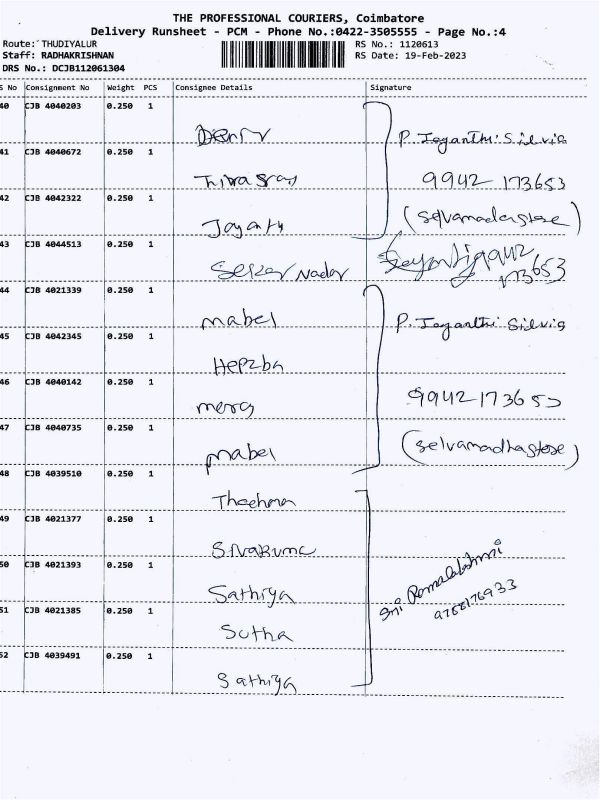 THE PROFESSIONAL COURIERS, Coimbatore
Delivery Runsheet - PCM - Phone No.:0422-3505555 - Page No.:4
Route: THUDIYALUR
RS No.: 1120613
Staff: RADHAKRISHNAN
RS Date: 19-Feb-2023
DRS No.: DCJB112061304
S No Consignment No Weight PCS Consignee Details Signature
40 CJB 4040203 0.250 1
P. Jeyanthi Silvia
41 CJB 4040672 0.250 1 
9942 173653
42 CJB 4042322 0.250 1 Jayanty
43 CJB 4044513 0.250 1 Seker Nader
173653
44 CJB 4021339 0.250 1 mabel
P. Jeyanthi Silvia
45 CJB 4042345 0.250 1 Hepzba
46 CJB 4040142 0.250 1 mercy
9942173653
47 CJB 4040735 0.250 1 mabel
(selvamadhastore)
48 CJB 4039510 0.250 1
49 CJB 4021377 0.250 1 Sivakumc
50 CJB 4021393 0.250 1 Sathiya
51 CJB 4021385 0.250 1 Sutha
52 CJB 4039491 0.250 1 Sathiya